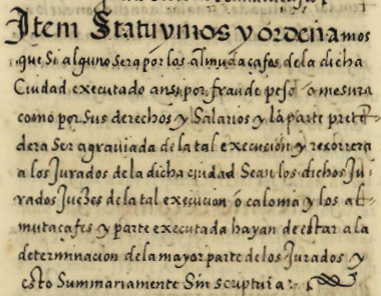 Item Statuymos y ordenamos
que si alguno sera por los almudaçafes de la dicha
Ciudad executado ansi por fraude peso o mesura
como por sus derechos y Salarios y la parte prete
dera ser agraviada de la tal execuçion y recorrera
a los Jurados de la dicha ciudad Sean los dichos Ju
rados Juezes de la tal execucion ó caloma y los al
mutaçafes y parte executada hayan de estar a la
determinacion de la mayor parte de los Jurados y
esto Summariamente Sin scriptura: